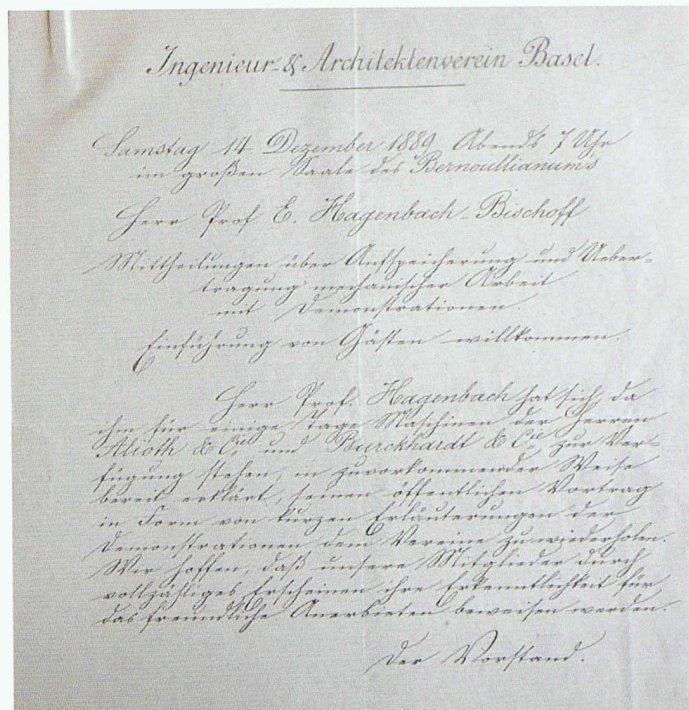 Ingenieur- & Architektenverein Basel.
Samstag 14 Dezember 1889 Abends 7 Uhr
im großen Saale des Bernoullianums
Herr Prof E. Hagenbach-Bischoff
Mittheilungen über Aufspeicherung und Ueber-
tragung mechanischer Arbeit
mit Demonstrationen.
Einführung von Gästen willkommen.
Herr Prof. Hagenbach hat sich, da
ihm für einige Tage Maschinen der Herren
Alioth & Cie. und Burckhardt & Cie. zur Ver-
fügung stehen, in zuvorkommender Weise
bereit erklärt, seinen öffentlichen Vortrag
in Form von kurzen Erläuterungen der
Demonstrationen dem Vereine zu wiederholen.
Wir hoffen, daß unsere Mitglieder durch
vollzähliges Erscheinen ihre Erkenntlichkeit für
das freundliche Anerbieten beweisen werden.
Der Vorstand.